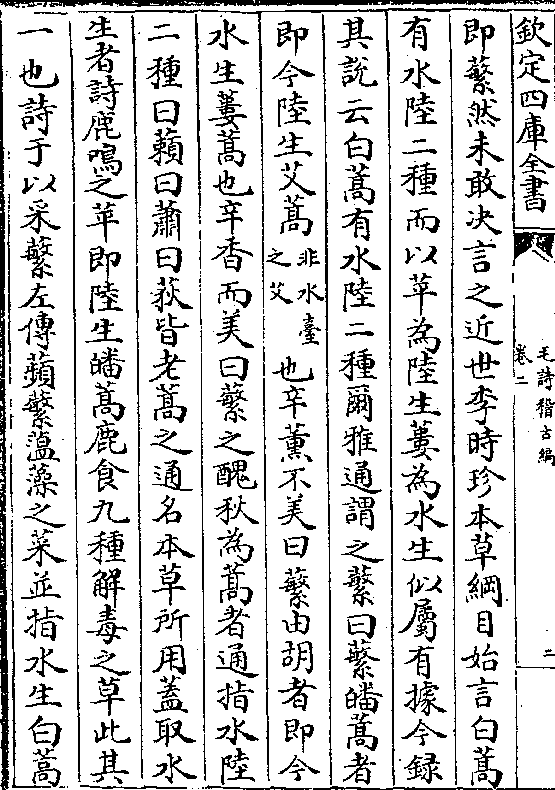 欽定四庫全書
毛詩稽古編
卷二
二
即蘩然未敢決言之近世李時珍本草綱目始言白蒿
有水陸二種而以苹為陸生蔞為水生似屬有據今録
其說云白蒿有水陸二種爾雅通謂之蘩曰蘩皤蒿者
即今陸生艾蒿非水臺之艾也辛薰不美曰蘩由胡者即今
水生蔞蒿也辛香而美曰蘩之醜秋為蒿者通指水陸
二種曰藾曰蕭曰荻皆老蒿之通名本草所用蓋取水
生者詩鹿鳴之苹即陸生皤蒿鹿食九種解毒之草此其
一也詩于以采蘩左傳蘋蘩薀藻之菜並指水生白蒿